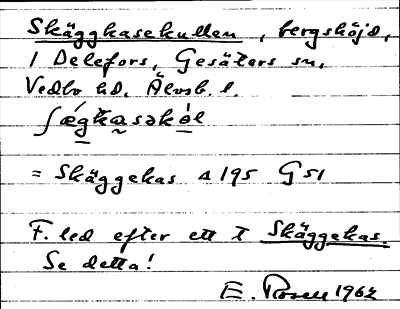 Skäggkasekullen, bergshöjd,
i Delefors, Gesäters sn,
Vedbo hd, Älvsb. l.
ʃǽgkasəkòl
= Skäggekas Δ 195 G 51
F. led efter ett T Skäggekas.
Se detta!
E. Rosell 1962